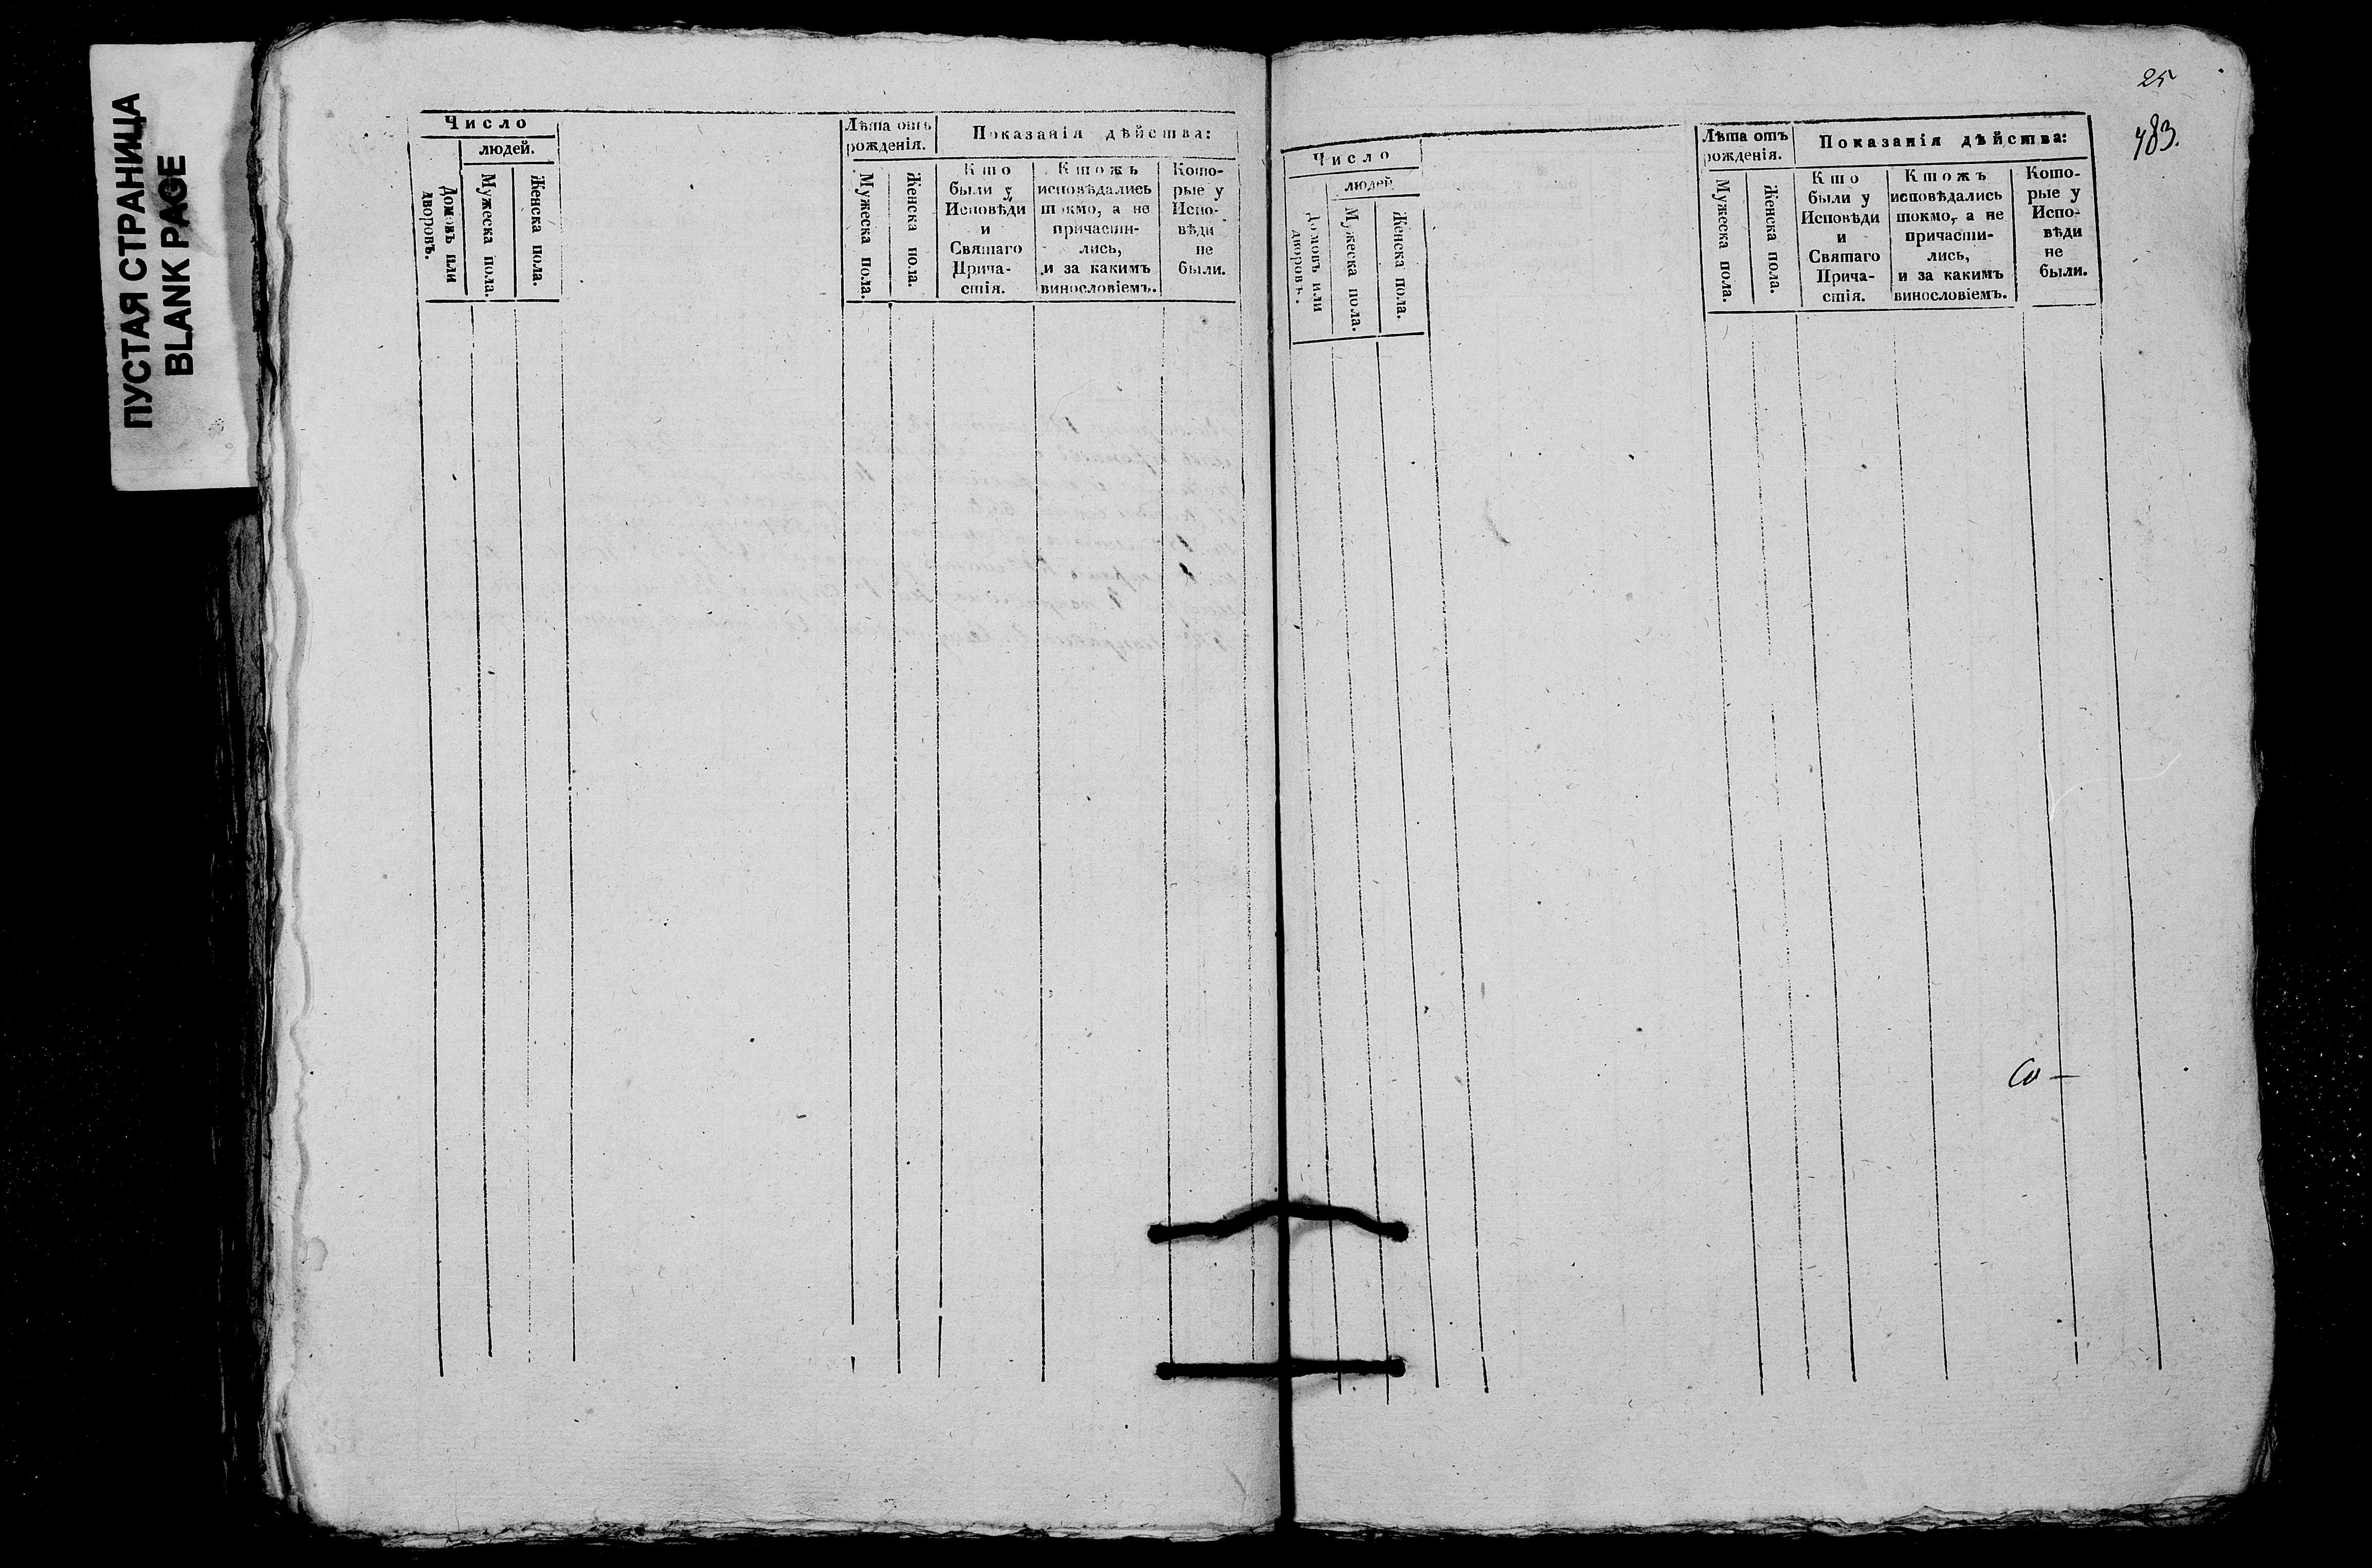 ПУСТАЯ СТРАНИЦА
BLANK PAGE
Число
людей.
Домовъ или
дворовъ.
Мужеска пола.
Женска пола.
Лѣта отъ
рожденія.
Мужеска пола.
Женска пола.
Показанія дѣйства:
Кто
были у
Исповѣди
и
Святаго
Прича-
стія.
Ктожъ
исповѣдались
токмо, а не
причасти-
лись,
и за какимъ
винословіемъ.
Кото-
рые у
Испо-
вѣди
не
были.
25
483.
Число
людей
Домовъ или
дворовъ.
Мужеска пола.
Женска пола.
Лѣта отъ
рожденія.
Мужеска пола.
Женска пола.
Показанія дѣйства:
Кто
были у
Исповѣди
и
Святаго
Прича-
стія.
Ктожъ
исповѣдались
токмо, а не
причасти-
лись,
и за какимъ
винословіемъ.
Кото-
рые у
Испо-
вѣди
не
были.
Со—